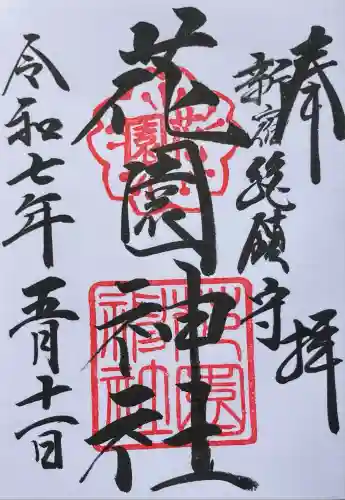 奉拝
新宿総鎮守
花園神社
令和七年
五月十一日
花園
花園神社